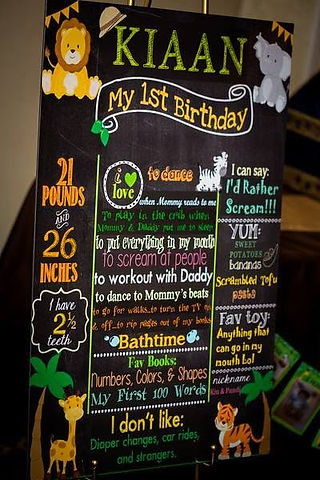 KIAAN
My 1st Birthday
21
POUNDS
AND
26
INCHES
I have
2 1/2
teeth
i
love
to dance
when Mommy reads to me
To play in the crib when
Mommy & Daddy put me to sleep
to put everything in my mouth
to scream at people
to workout with Daddy
to dance to Mommy's beats
to go for walks..to turn the TV on
& off..to rip pages out of my books
Bathtime
Fav Books:
Numbers, Colors, & Shapes
My First 100 Words
I can say:
I'd Rather
Scream!!!
YUM:
SWEET
POTATOES
bananas
Scrambled Tofu
pasta
Fav toy:
Anything that
can go in my
mouth Lol
nickname
I don't like:
Diaper changes, car rides,
and strangers.